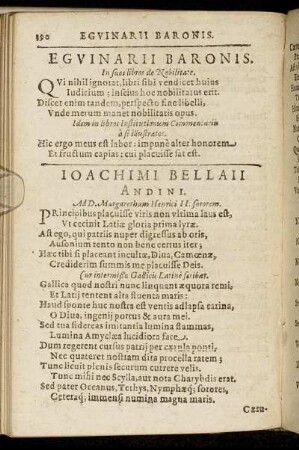 190 EGVINARII BARONIS.
EGVINARII BARONIS.
In suos libros de Nobilitate.
QVi nihil ignorat, libri sibi vendicet huius
Iudicium; Inscius hoc nobilitatus erit.
Discet enim tandem, perspecto fine libelli,
Vnde merum manet nobilitatis opus.
Idem in libros Institutionum Commentariis
à se illustratos.
Hic ergo meus est labor: impunè alter honorem
Et fructum capias; cui placuisse sat est.
IOACHIMI BELLAII
ANDINI.
Ad D. Margaretham Henrici II. sororem.
PRincipibus placuisse viris non vltima laus est,
Vt cecinit Latiæ gloria prima lyræ.
Ast ego, qui patriis nuper digressus ab oris,
Ausonium tento non bene certus iter;
Hæc tibi si placeant incultæ, Diua, Camœnæ,
Crediderim summis me placuisse Deis.
Cur intermissis Gallicis Latinè scribat.
Gallica quod nostri nunc linquant æquora remi,
Et Latij tentent alta fluenta maris:
Haud sponte huc nostra est ventis adlapsa carina,
O Diua, ingenij portus & aura mei.
Sed tua sidereas imitantia lumina flammas,
Lumina Amyclæa lucidiora face.
Dum regerent cursus patrij per cærula ponti,
Nec quateret nostram dita procella ratem;
Tunc licuit plenis securum cutrere velis.
Tunc mihi nec Scylla, aut nota Charybdis erat.
Sed pater Oceanus, Tethys, Nymphæq; sorores,
Ceteraq; immensi numina magna maris.
Cæru-